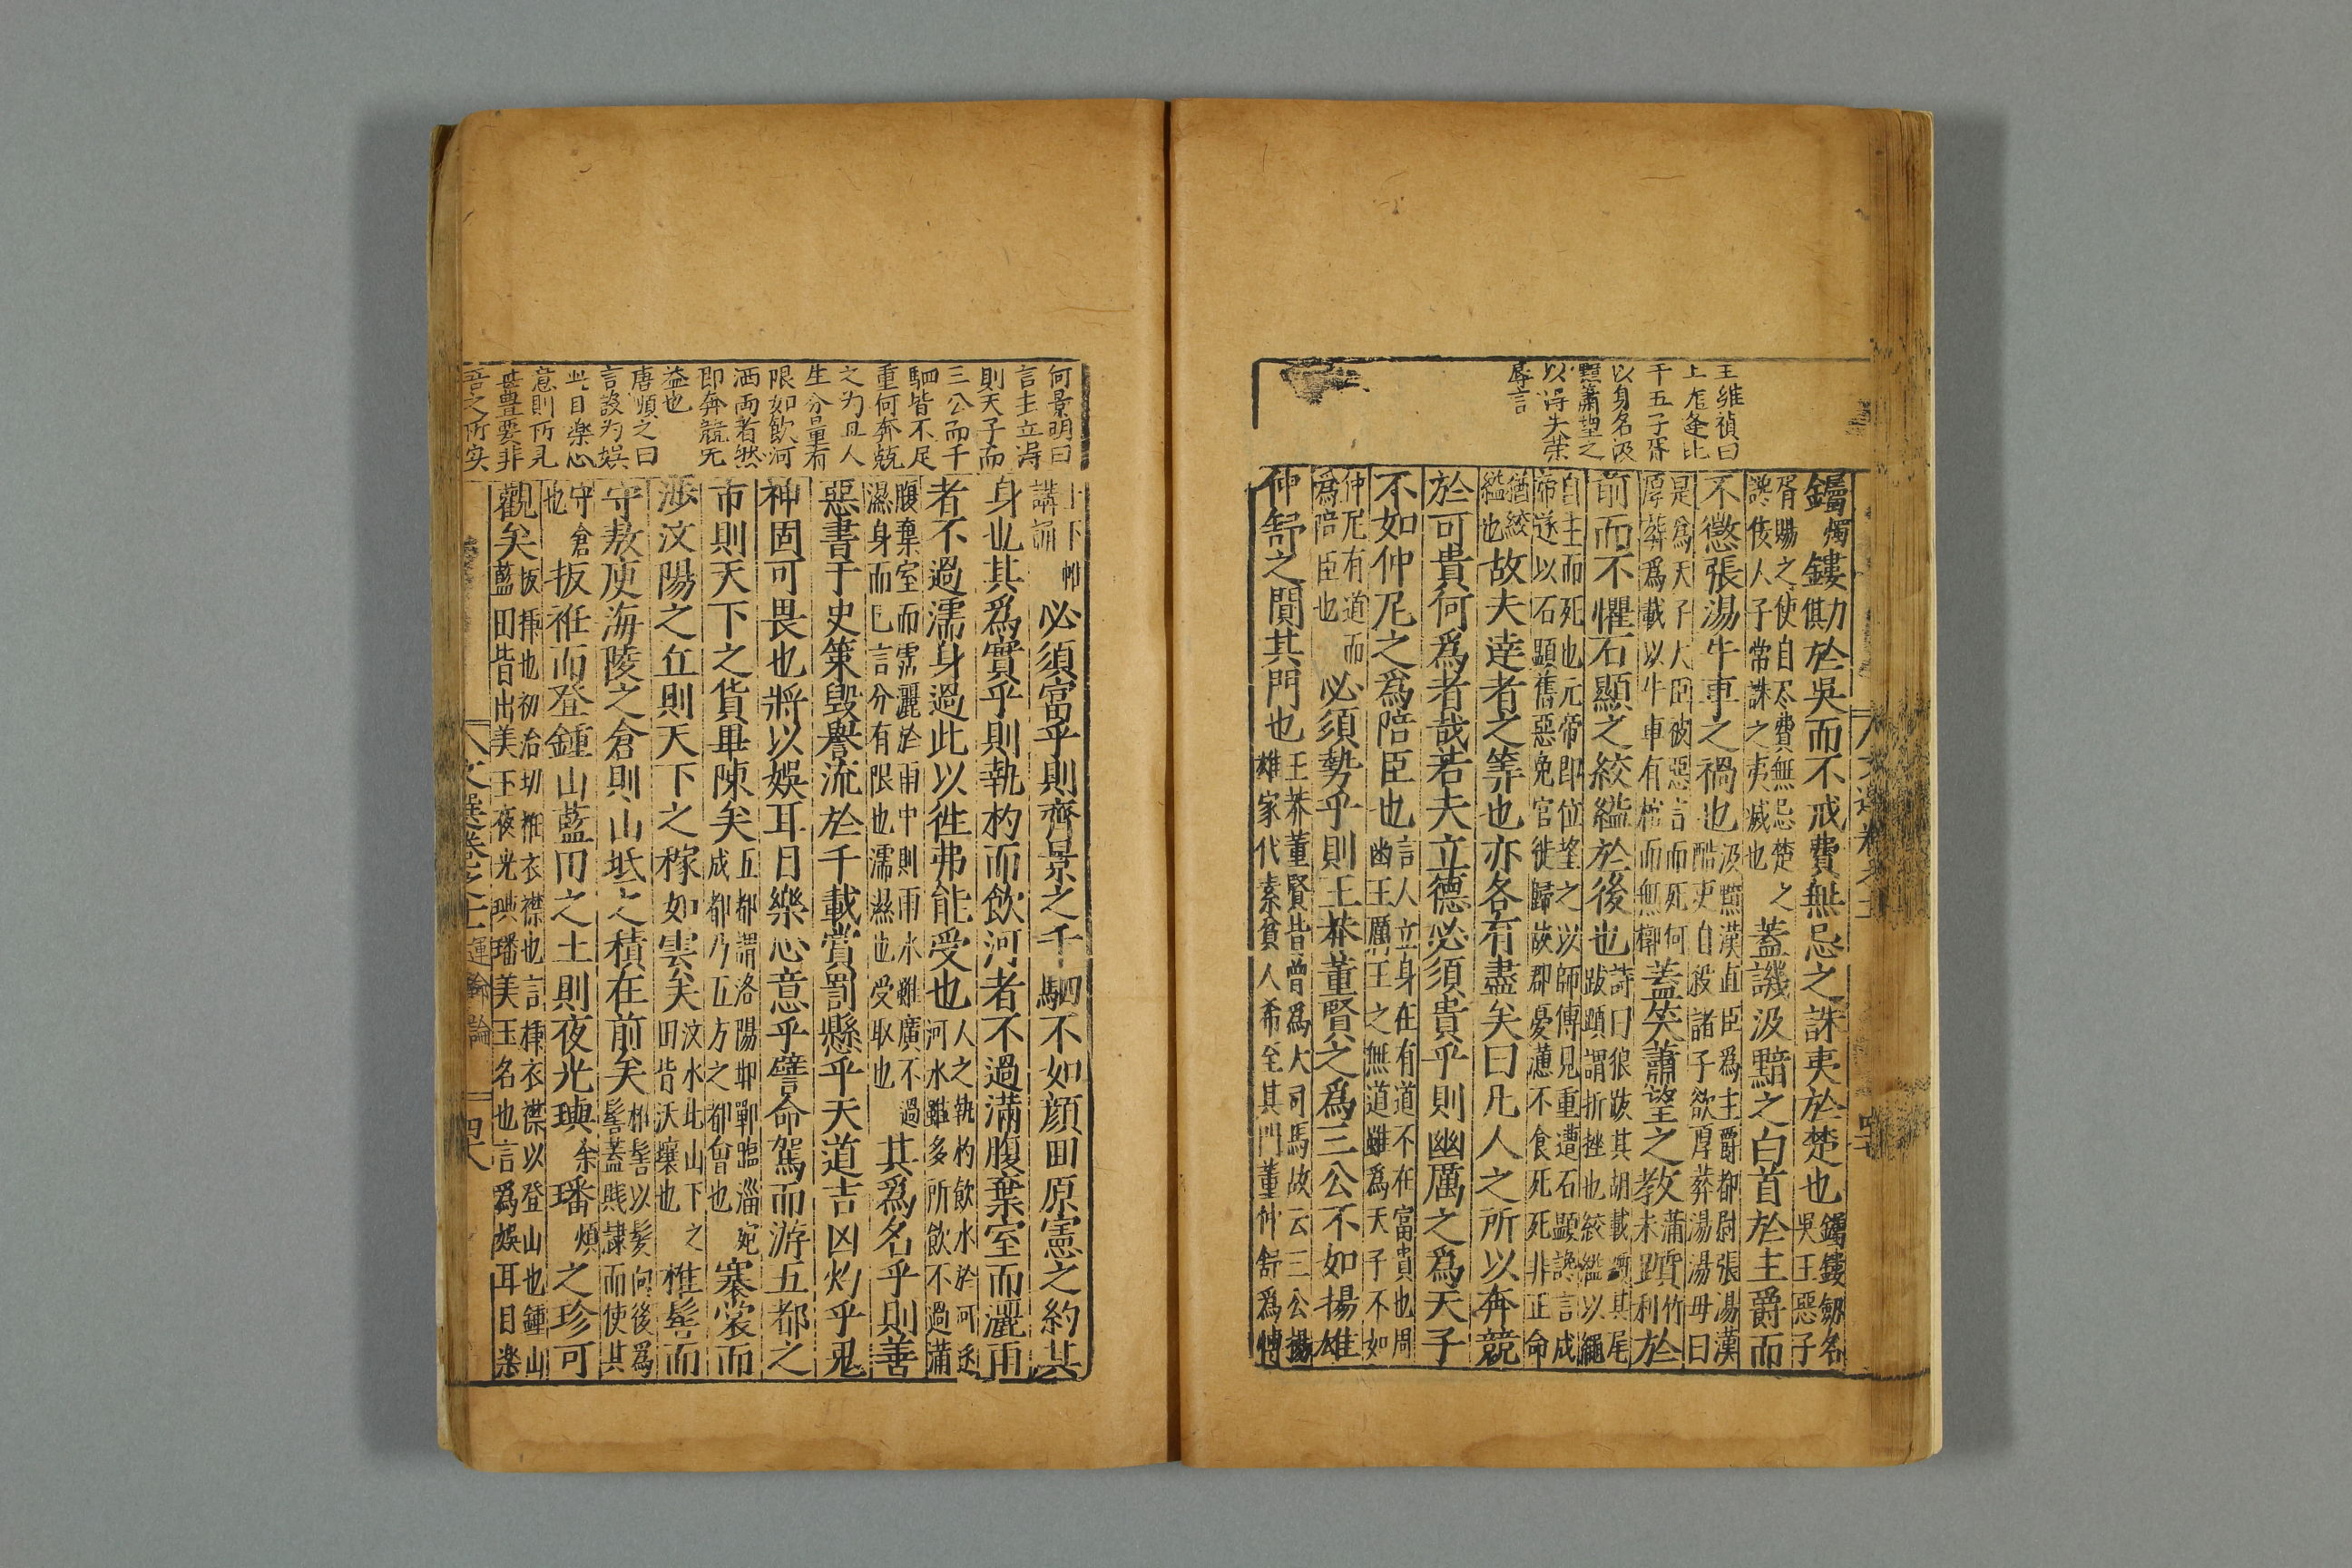 王維禎曰
上尨逢比
干五子胥
以身名汲
黯蕭望之
以得失榮
辱言
鐲燭鏤劬於吳而不戒費無忌之誅夷於楚也
鐲鏤劒名
吳王惡子
胥賜之使自尽費無忌楚之
讒佞人子常誅之夷滅也
蓋譏汲黯之白首於主爵而
不懲張湯牛車之禍也
汲黯漢直臣爲主爵都尉張湯漢
酷吏自殺諸子欲厚葬湯湯母曰
是爲天子大臣被惡言而死何
厚葬爲載以牛車有棺而無槨
蓋笑蕭望之跋蒲末躓竹利於
前而不懼石顯之絞縊於後也
詩曰狼跋其胡載疐其尾
跋躓謂折挫也絞縊以繩
自主而死也元帝即位望之以師傅見重遭石顯讒言成
帝遂以石顯舊惡免官徙歸故郡憂懣不食死死非正命
猶絞
縊也
故夫達者之筭也亦各有盡矣曰凡人之所以奔競
於可貴何爲者哉若夫立德必須貴乎則幽厲之爲天子
不如仲尼之爲陪臣也
言人立身在有道不在富貴也周
幽王厲王之無道雖爲天子不如
仲尼有道而
爲陪臣也
必須勢乎則王莽董賢之爲三公不如揚雄
仲舒之闃其門也
王莽董賢皆曾爲大司馬故云三公揚
雄家代素貧人希至其門董仲舒爲博
何景明曰
言主立淂
則天子而
三公而千
駟皆不足
重何奔競
之为且人
生分量有
限如飲河
洒雨者然
即奔競无
益也
唐順之曰
言設为娛
此目樂心
意則所見
甚豊要非
吾之所实
上下帷
講誦
必須富乎則齊景之千駟不如顔囬原憲之約其
身也其爲實乎則執杓而飲河者不過滿腹棄室而灑雨
者不過濡身過此以徃弗能受也
人之執杓飲水於河逐
河水雖多所飲不過蒲
腹棄室而霑灑於雨中則雨水雖廣不過
濕身而已言分有限也濡濕也受取也
其爲名乎則善
惡書于史策毀譽流於千載賞罰懸乎天道吉凶灼乎鬼
神固可畏也將以娛耳目樂心意乎譬命駕而游五都之
市則天下之貨畢陳矣
五都謂洛陽邯鄲臨淄宛
成都乃五方之都會也
褰裳而
涉汶陽之丘則天下之稼如雲矣
汶水北山下之
田皆沃壤也
椎髻而
守敖庾海陵之倉則山坻之積在前矣
椎髻以髪向後爲
髻蓋賎隷而使其
守倉
也
扱袵而登鍾山藍田之土則夜光璵余璠煩之珍可
觀矣
扱揷也初洽切袵衣襟也言揷衣襟以登山也鍾山
藍田皆出美玉夜光璵璠美玉名也言爲娛耳目楽
文選卷之十一
運命論
四十八